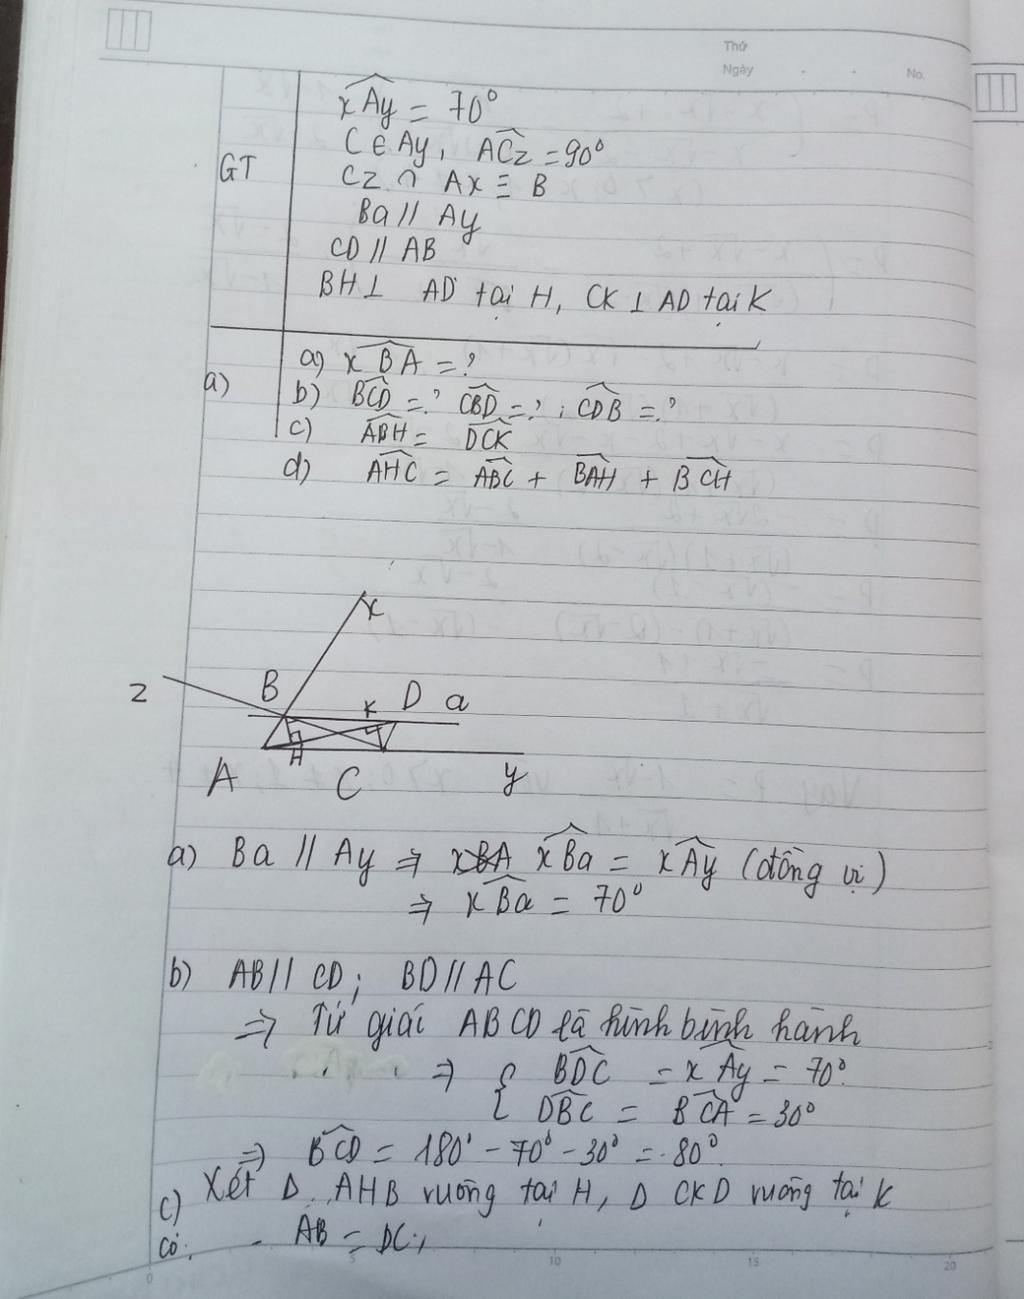 Thứ
Ngày
No.
GT
xAy = 70°
C ∈ Ay, ACz = 90°
Cz ∩ Ax ≡ B
Ba // Ay
CD // AB
BH ⊥ AD tại H, CK ⊥ AD tại K
a)
a) xBA = ?
b) BCD = ? CBD = ? ; CDB = ?
c) ABH = DCK
d) AHC = ABC + BAH + BCH
x
z B K D a
H
A C y
a) Ba // Ay ⇒ xBa = xAy (đồng vị)
⇒ xBa = 70°
b) AB // CD ; BD // AC
⇒ Tứ giác ABCD là hình bình hành
⇒ { BDC = xAy = 70°
DBC = BCA = 30°
⇒ BCD = 180° - 70° - 30° = 80°
c) Xét Δ AHB vuông tại H, Δ CKD vuông tại K
có: - AB = DC ;
0 5 10 15 20